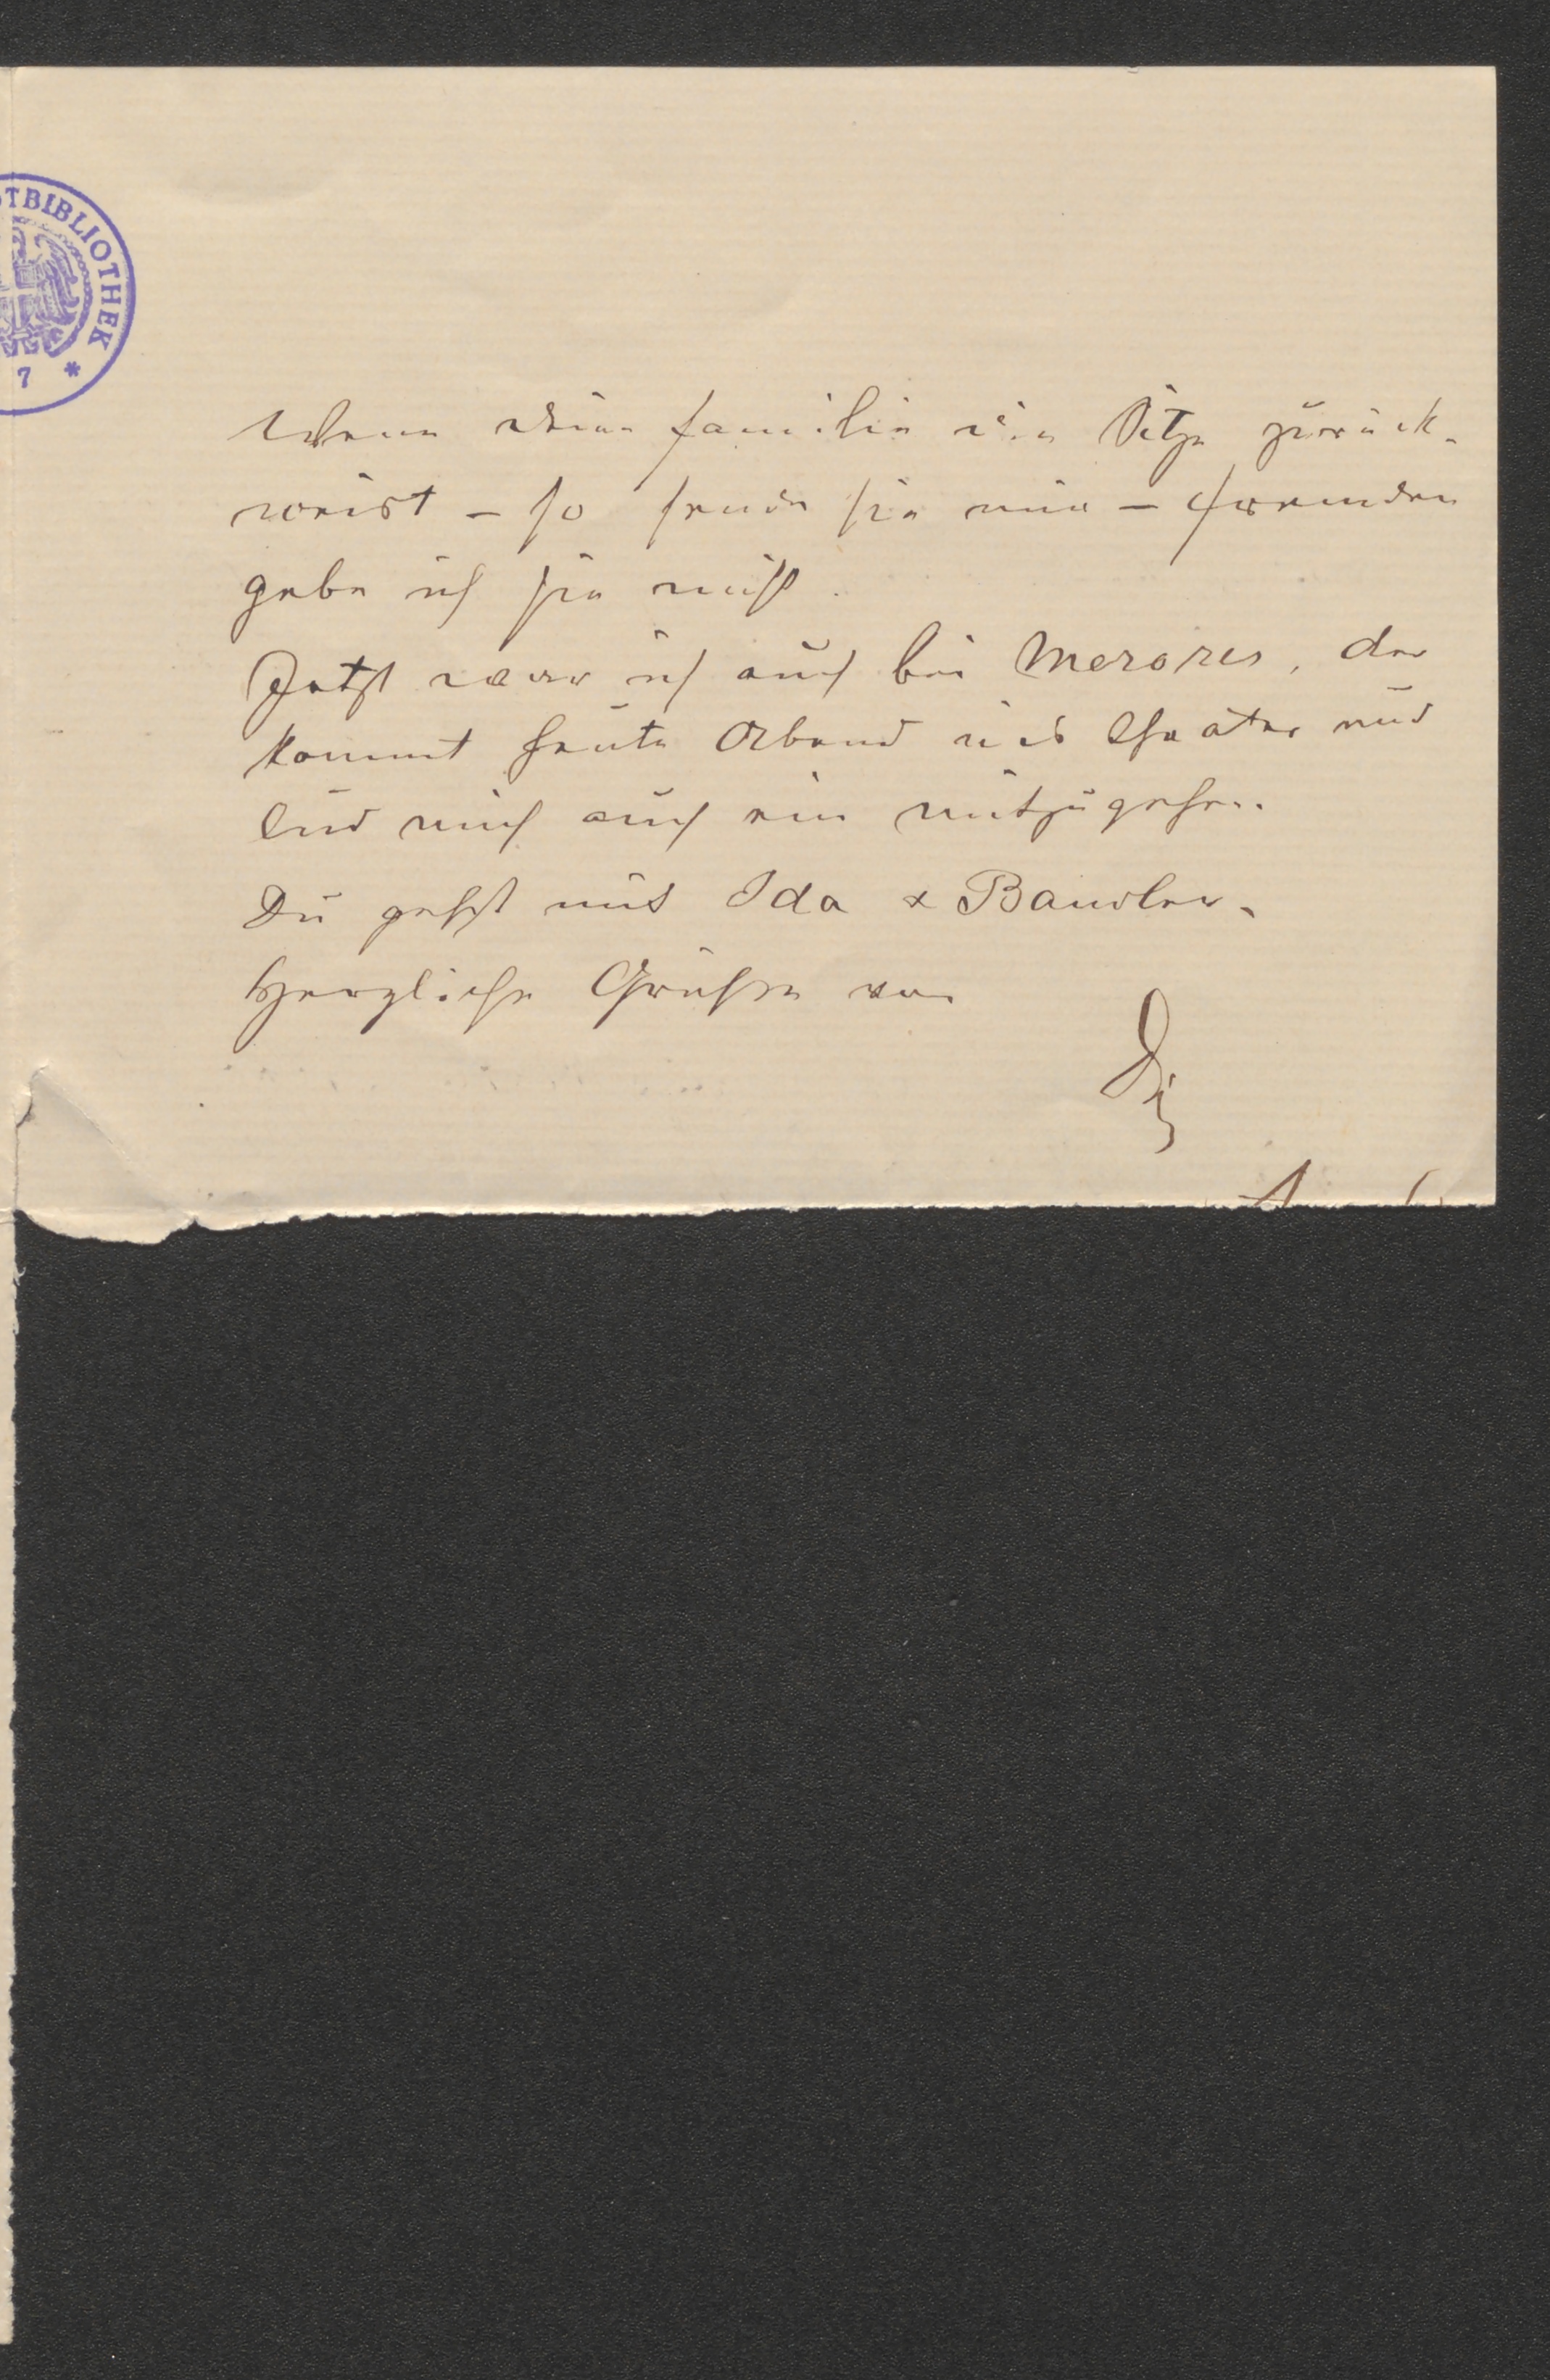 TBIBLIOTHEK
7 *
Wenn deine Familie die Sitze zurück-
weist – so sende sie mir – Fremden
gebe ich sie nicht.
Jetzt war ich auch bei Merores, der
kommt heute Abend ins Theater und
lud mich auch ein mitzugehen.
Du gehst mit Ida & Baudler.
Herzliche Grüße von